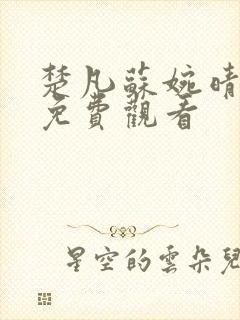 楚凡蘇婉晴
免費觀看
星空的雲朵兒